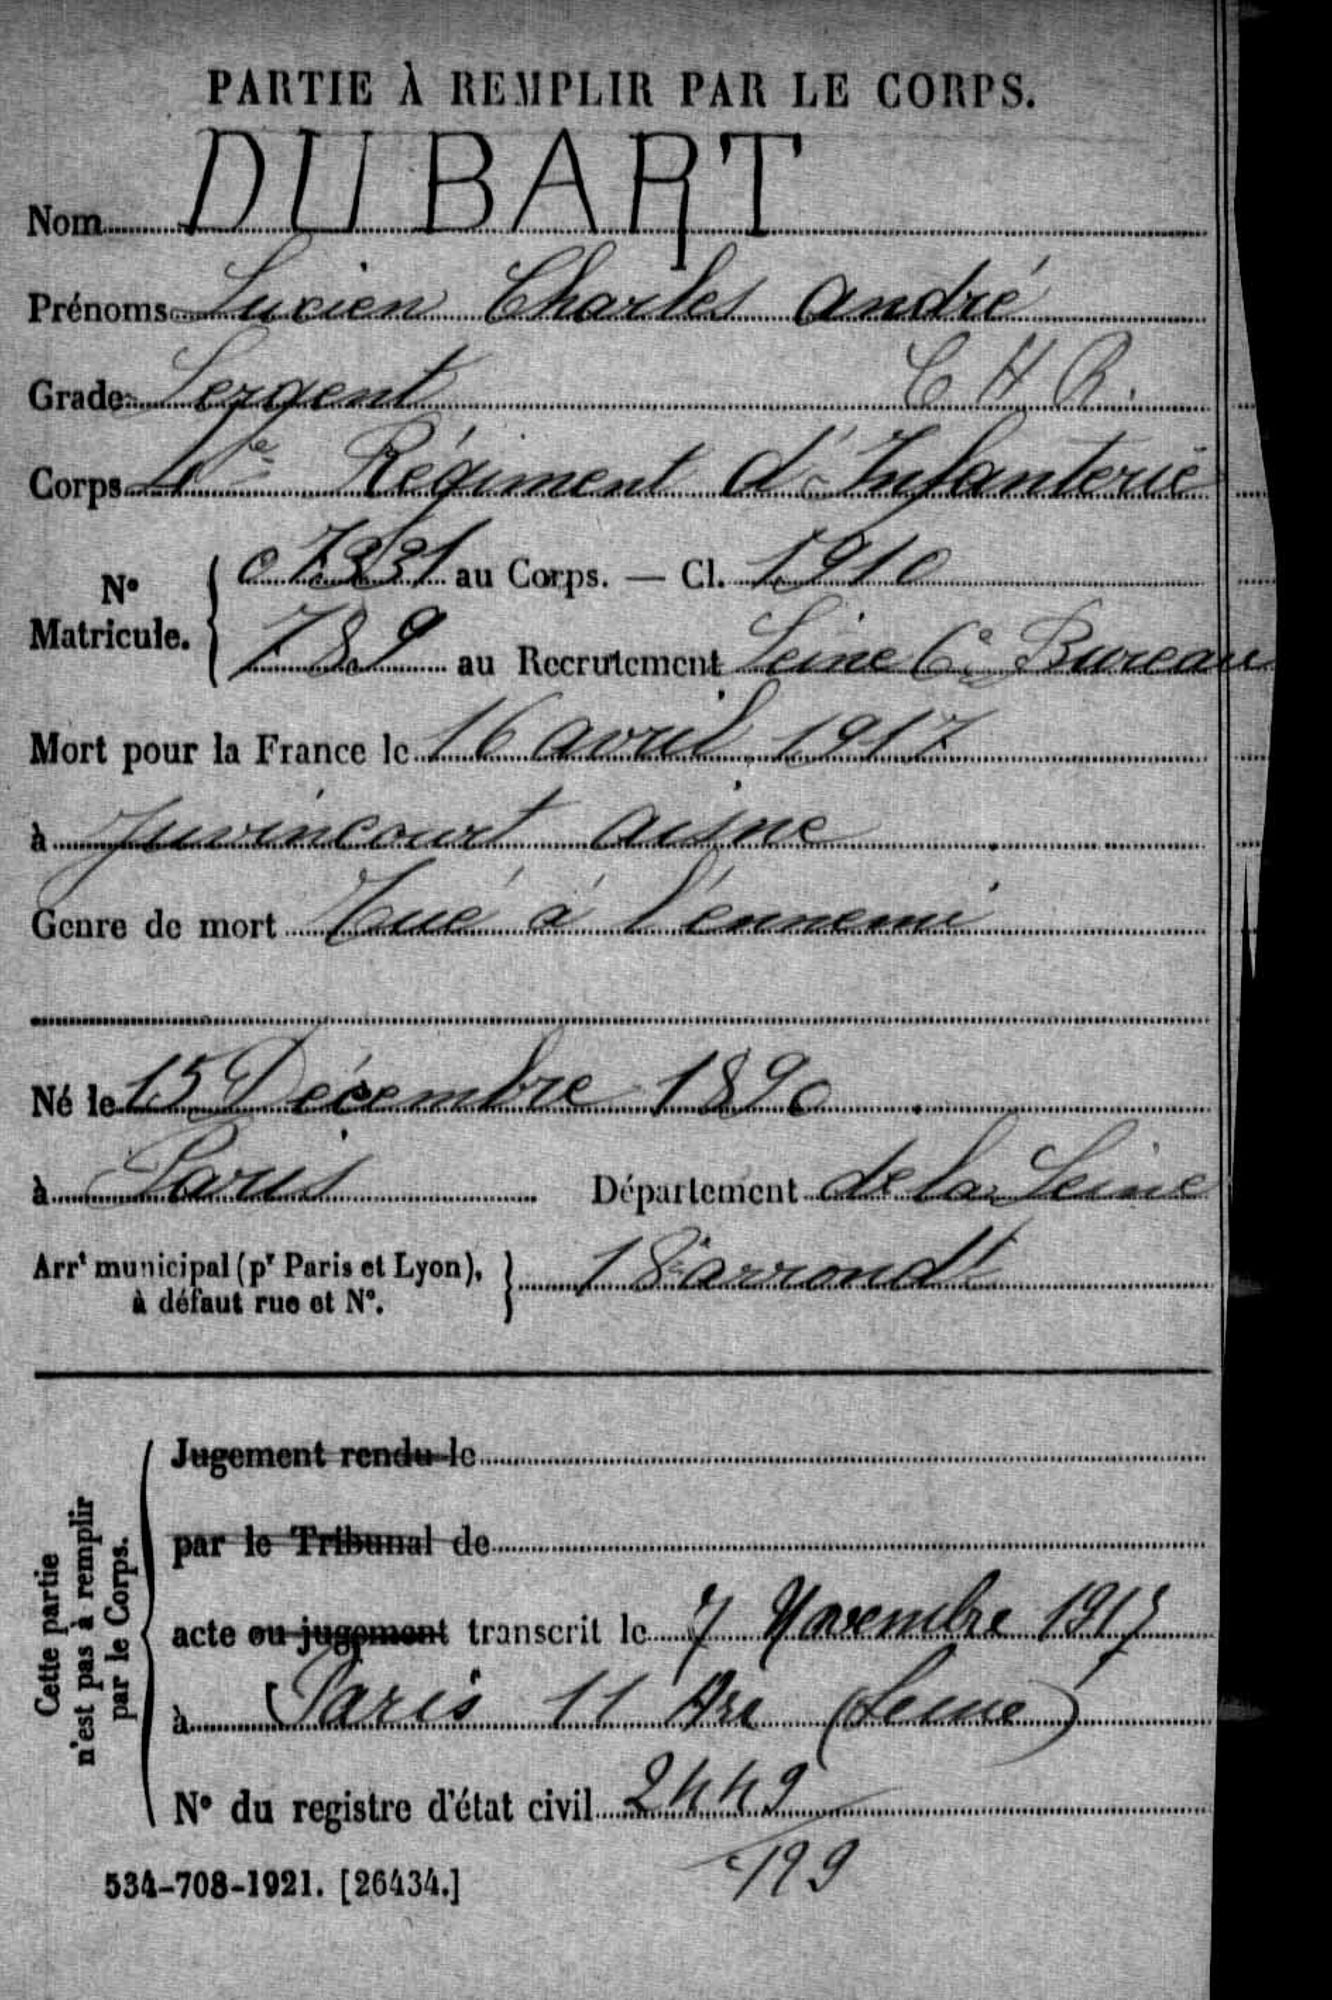 PARTIE À REMPLIR PAR LE CORPS.
Nom DUBART
Prénoms Lucien Charles André
Grade Sergent C H R.
Corps Régiment d'Infanterie
N° Matricule. { au Corps. — Cl. 1910
789 au Recrutement Seine 6e Bureau
Mort pour la France le 16 avril 1917
à Juvincourt Aisne
Genre de mort Tué à l'ennemi
Né le 15 Décembre 1890
à Paris Département de la Seine
Arrt municipal (pr Paris et Lyon), à défaut rue et N°. } 18e arrondt
Cette partie n'est pas à remplir par le Corps.
Jugement rendu le
par le Tribunal de
acte ou jugement transcrit le 7 Novembre 1917
à Paris 11 Are (Seine)
N° du registre d'état civil 2449
534-708-1921. [26434.]